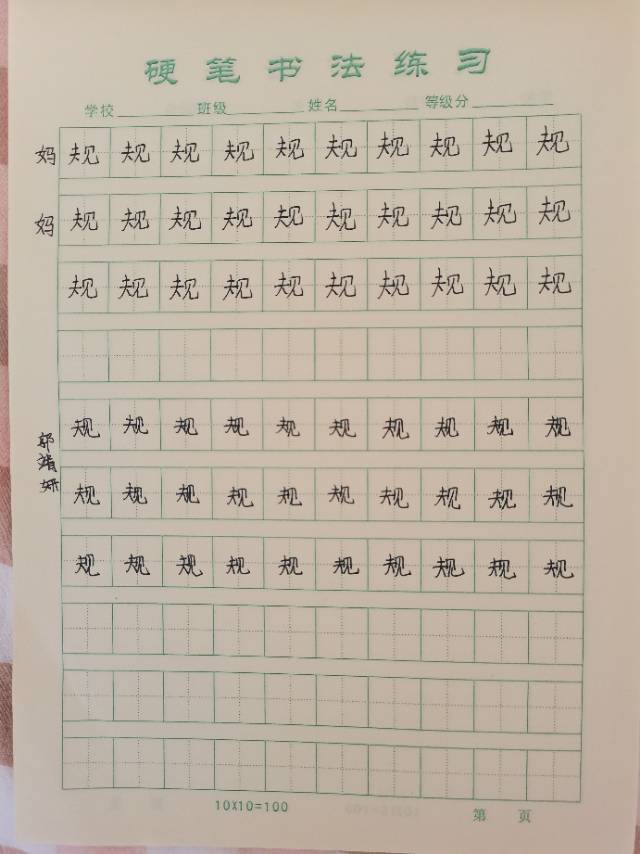 硬笔书法练习
学校 班级 姓名 等级分
妈 规 规 规 规 规 规 规 规 规 规
妈 规 规 规 规 规 规 规 规 规 规
规 规 规 规 规 规 规 规 规 规
郭靖妍 规 规 规 规 规 规 规 规 规 规
规 规 规 规 规 规 规 规 规 规
规 规 规 规 规 规 规 规 规 规
10X10=100 第 页